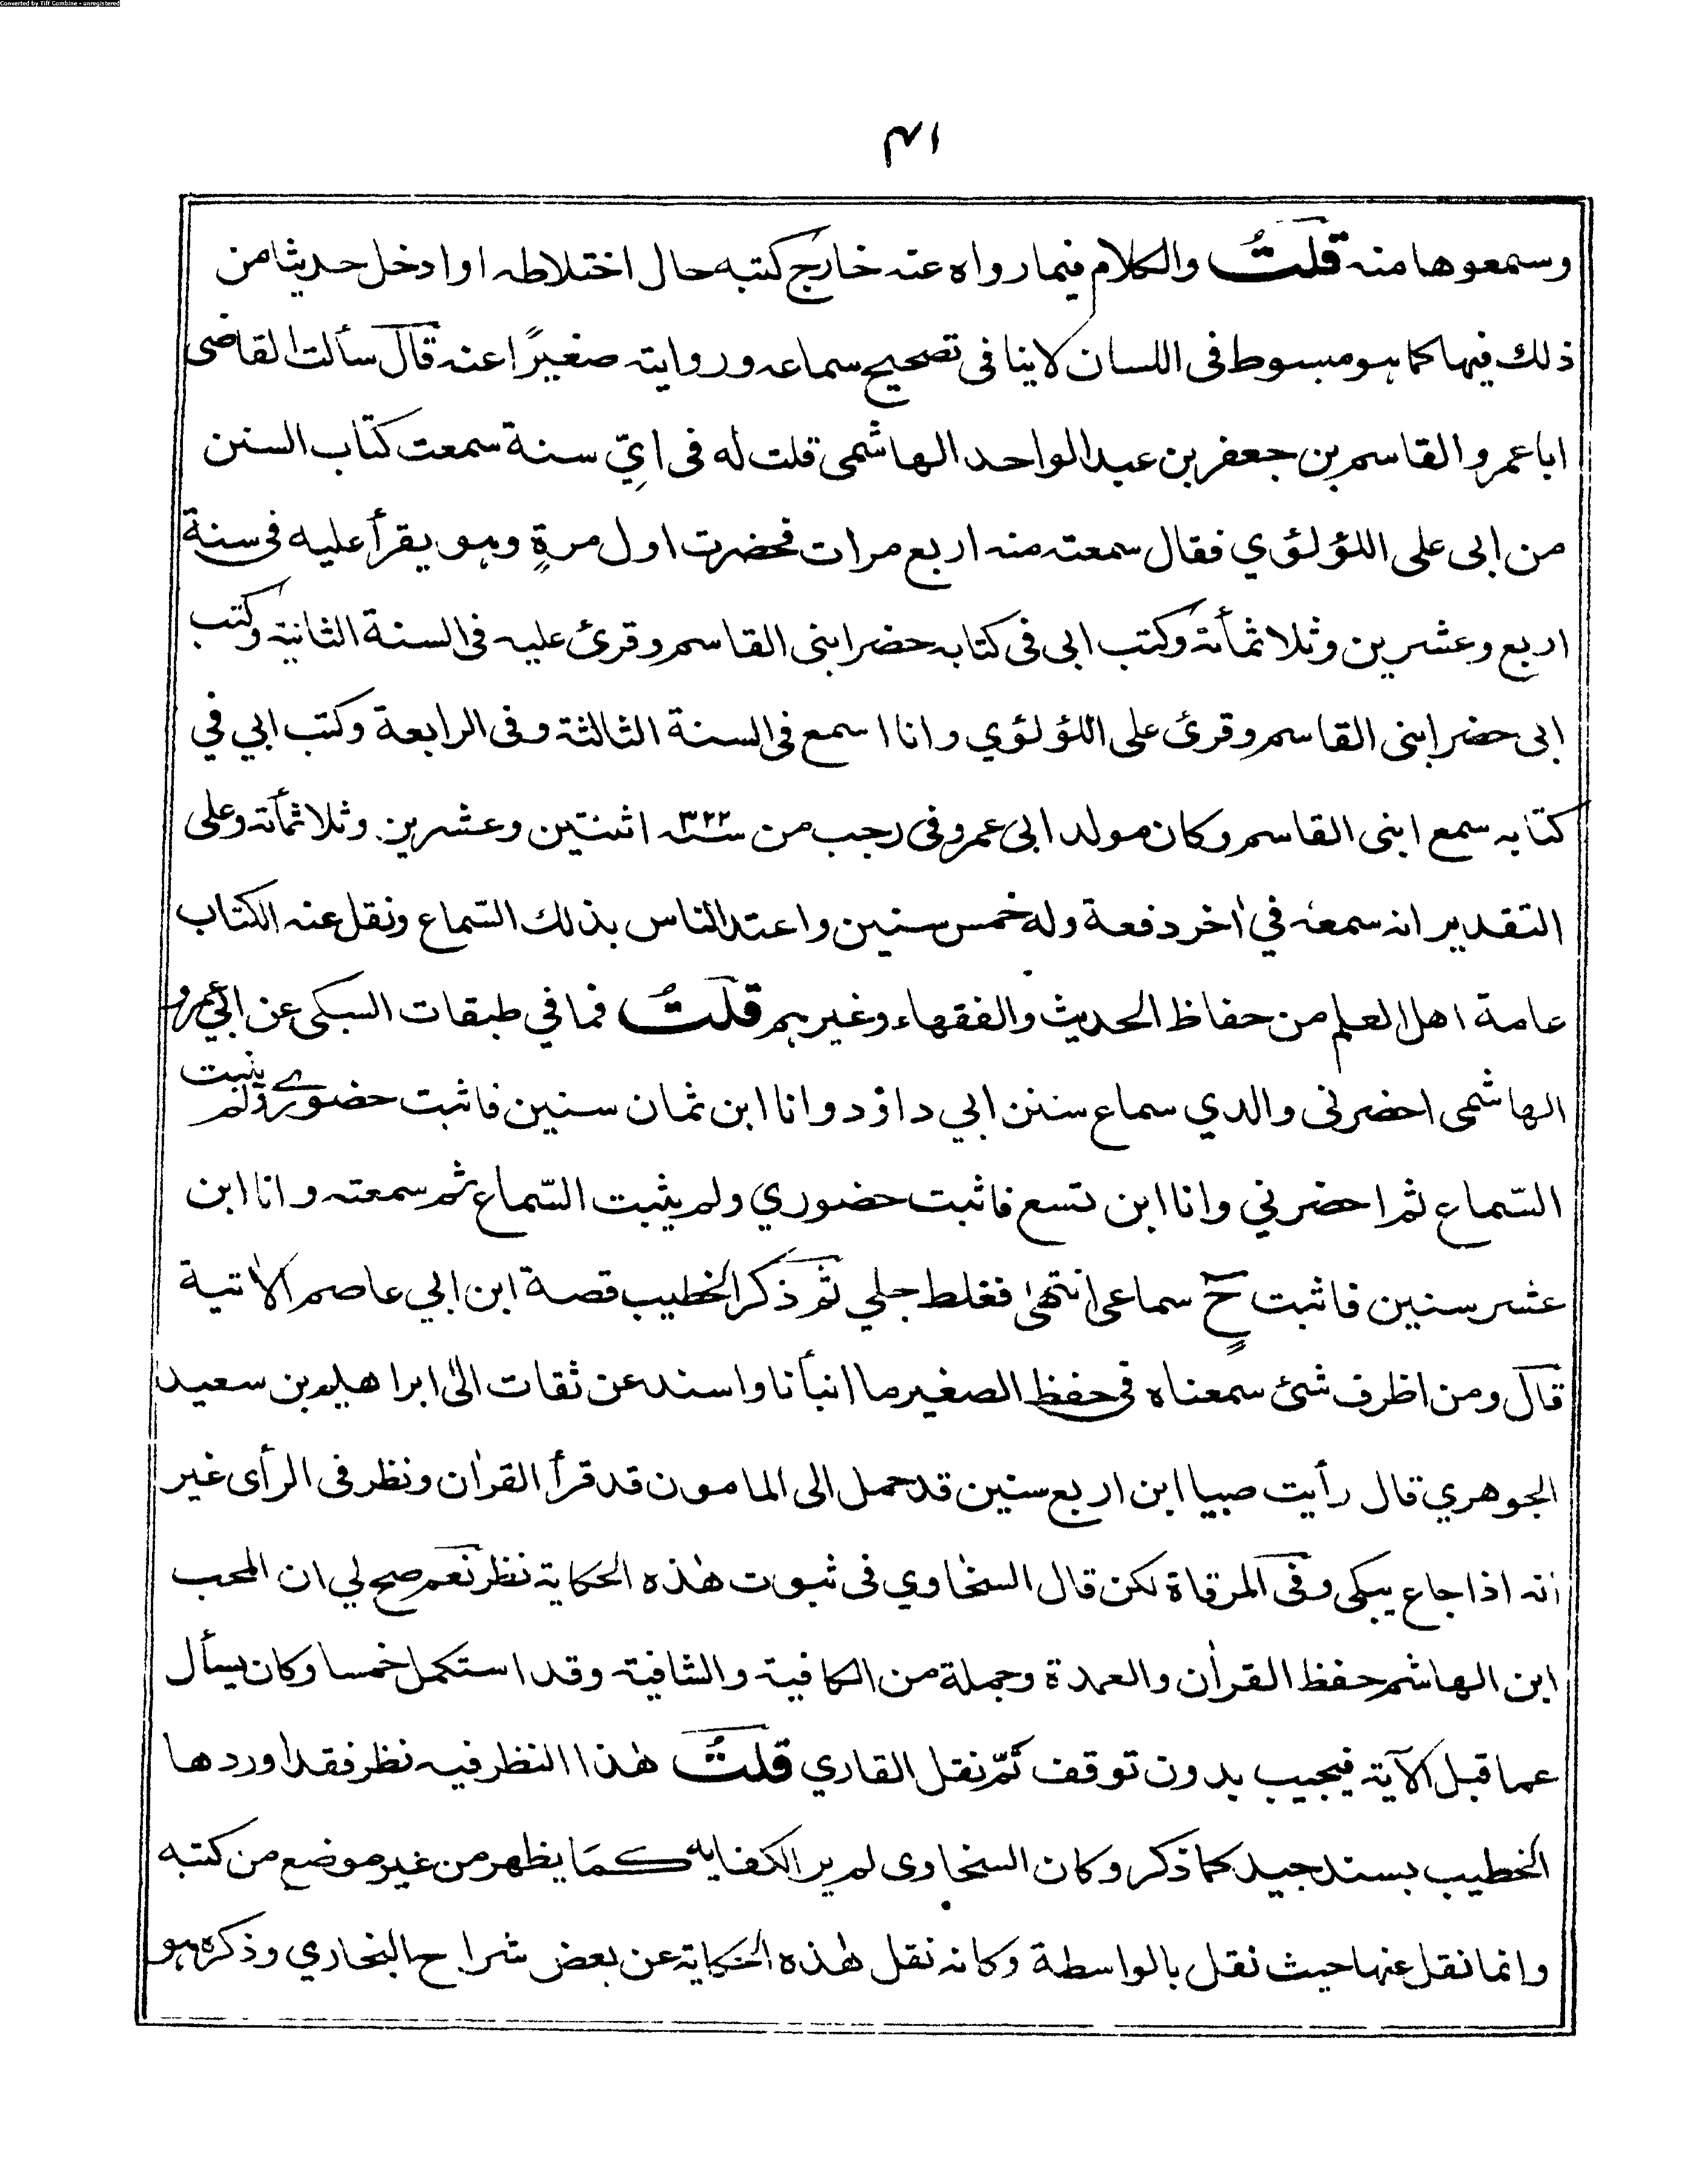 Converted by Tiff Combine - unregistered
وسمعوها منہ قلتُ والکلام فیما رواہ عنہ خارج کتبہ حال اختلاطہ او ادخل حدیثا من
ذلك فیہا کما ہو مبسوط فی اللسان لا ینافی تصحیح سماعہ وروایتہ صغیرًا عنہ قال سألت القاضی
ابا عمرو القاسم بن جعفر بن عبد الواحد الہاشمی قلت لہ فی ایِّ سنة سمعت کتاب السنن
من ابی علی اللؤلؤي فقال سمعتہ منہ اربع مرات فحضرت اول مرةٍ وہو یقرأ علیہ فی سنة
اربع وعشرین وثلاثمأتہ وکتب ابی فی کتابہ حضر ابنی القاسم وقرئ علیہ فی السنة الثانیة وکتب
ابی حضر ابنی القاسم وقرئ علی اللؤلؤي وانا اسمع فی السنة الثالثة وفی الرابعة وکتب ابي في
کتابہ سمع ابنی القاسم وکان مولد ابی عمرو فی رجب من سنہ ٣٢٢ اثنتین وعشرین وثلاثمأتہ وعلی
التقدیر انہ سمعہ في اٰخر دفعة ولہ خمس سنین واعتد الناس بذلك السّماع ونقل عنہ الکتاب
عامة اهل العلم من حفاظ الحدیث والفقهاء وغیرہم قلتُ فما في طبقات السبکی عن ابي عمرو
الهاشمی احضرنی والدي سماع سنن ابي داؤد وانا ابن ثمان سنین فاثبت حضوري ولم یثبت
السّماع ثم احضرني وانا ابن تسع فاثبت حضوري ولم یثبت السّماع ثم سمعتہ وانا ابن
عشر سنین فاثبت حٍ سماعی انتهىٰ فغلط جلي ثم ذکر الخطیب قصة ابن ابي عاصم الاٰتیة
قال ومن اظرف شئ سمعناه فی حفظ الصغیر ما انبأنا واسند عن ثقات الیٰ ابراهیم بن سعید
الجوهري قال رأیت صبیا ابن اربع سنین قد حمل الی المامون قد قرأ القراٰن ونظر فی الرأی غیر
انہ اذا جاع یبکی وفی المرقاة لکن قال السخاوي فی ثبوت هٰذه الحکایة نظر نعم صح لي ان المحب
ابن الهاشم حفظ القراٰن والعمدة وجملة من الکافیة والشافیة وقد استکمل خمسا وکان یسأل
عما قبل الآیة فیجیب بدون توقف ثمّ نقل القاري قلتُ هٰذا النظر فیہ نظر فقد اوردها
الخطیب بسند جید کما ذکر وکان السخاوی لم یر الکفایہ کما یظهر من غیر موضع من کتبہ
وانما نقل عنها حیث نقل بالواسطة وکانہ نقل هٰذه الحکایة عن بعض شراح البخاري وذکره ہو